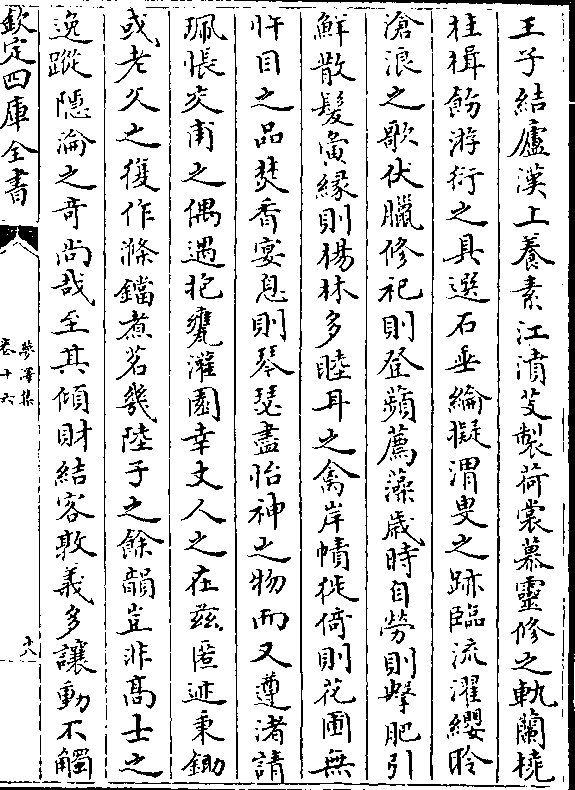 王子結廬漢上養素江濆芰製荷裳慕靈修之軌蘭橈
桂楫飭游衍之具選石垂綸擬渭叟之跡臨流濯纓聆
滄浪之歌伏臘修祀則登蘋薦藻歲時自勞則擊肥引
鮮散髮夤緣則楊林多睦耳之禽岸幘徙倚則花圃無
忤目之品焚香宴息則琴瑟盡怡神之物而又遵渚請
珮悵交甫之偶遇抱甕灌園幸丈人之在茲匿迹秉鋤
或老父之復作滌鐺煮茗幾陸子之餘韻豈非高士之
逸蹤隱淪之奇尚哉至其傾財結客敦義多讓動不觸
欽定四庫全書
夢澤集
卷十六
十八